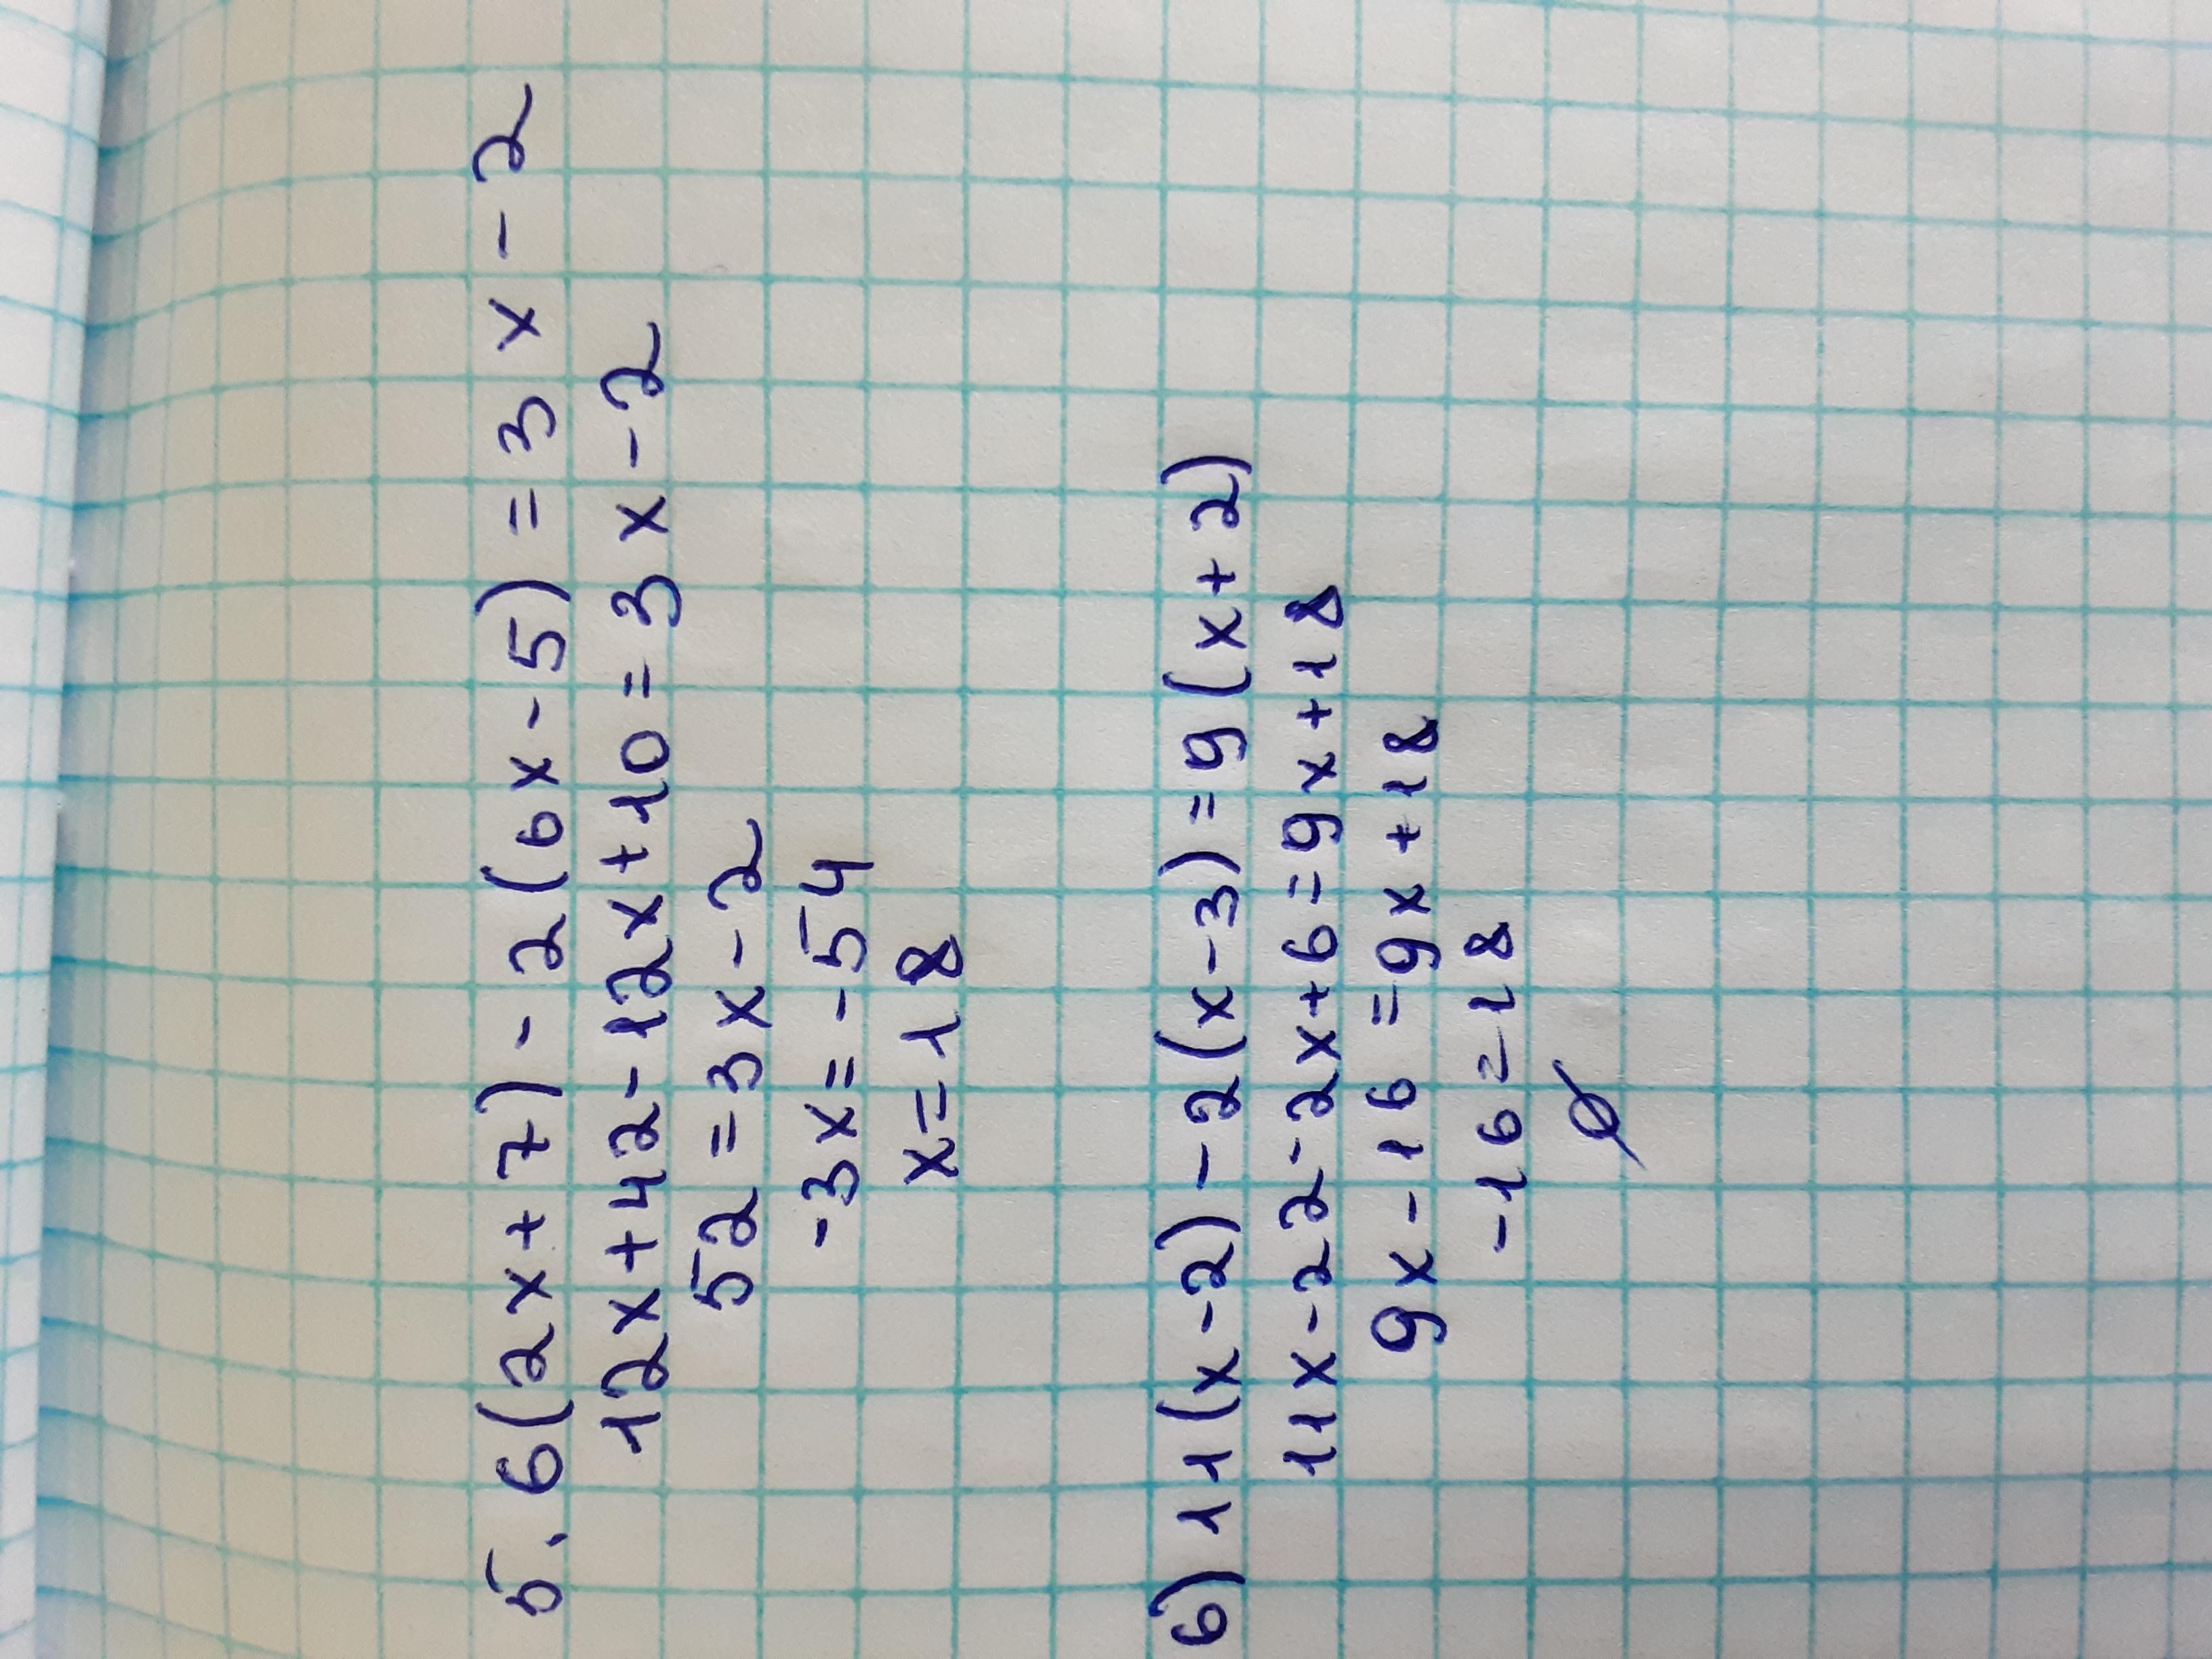 5. 6(2x+7)-2(6x-5)=3x-2
12x+42-12x+10=3x-2
52=3x-2
-3x=-54
x=18
6) 11(x-2)-2(x-3)=9(x+2)
11x-22-2x+6=9x+18
9x-16=9x+18
-16=18
∅